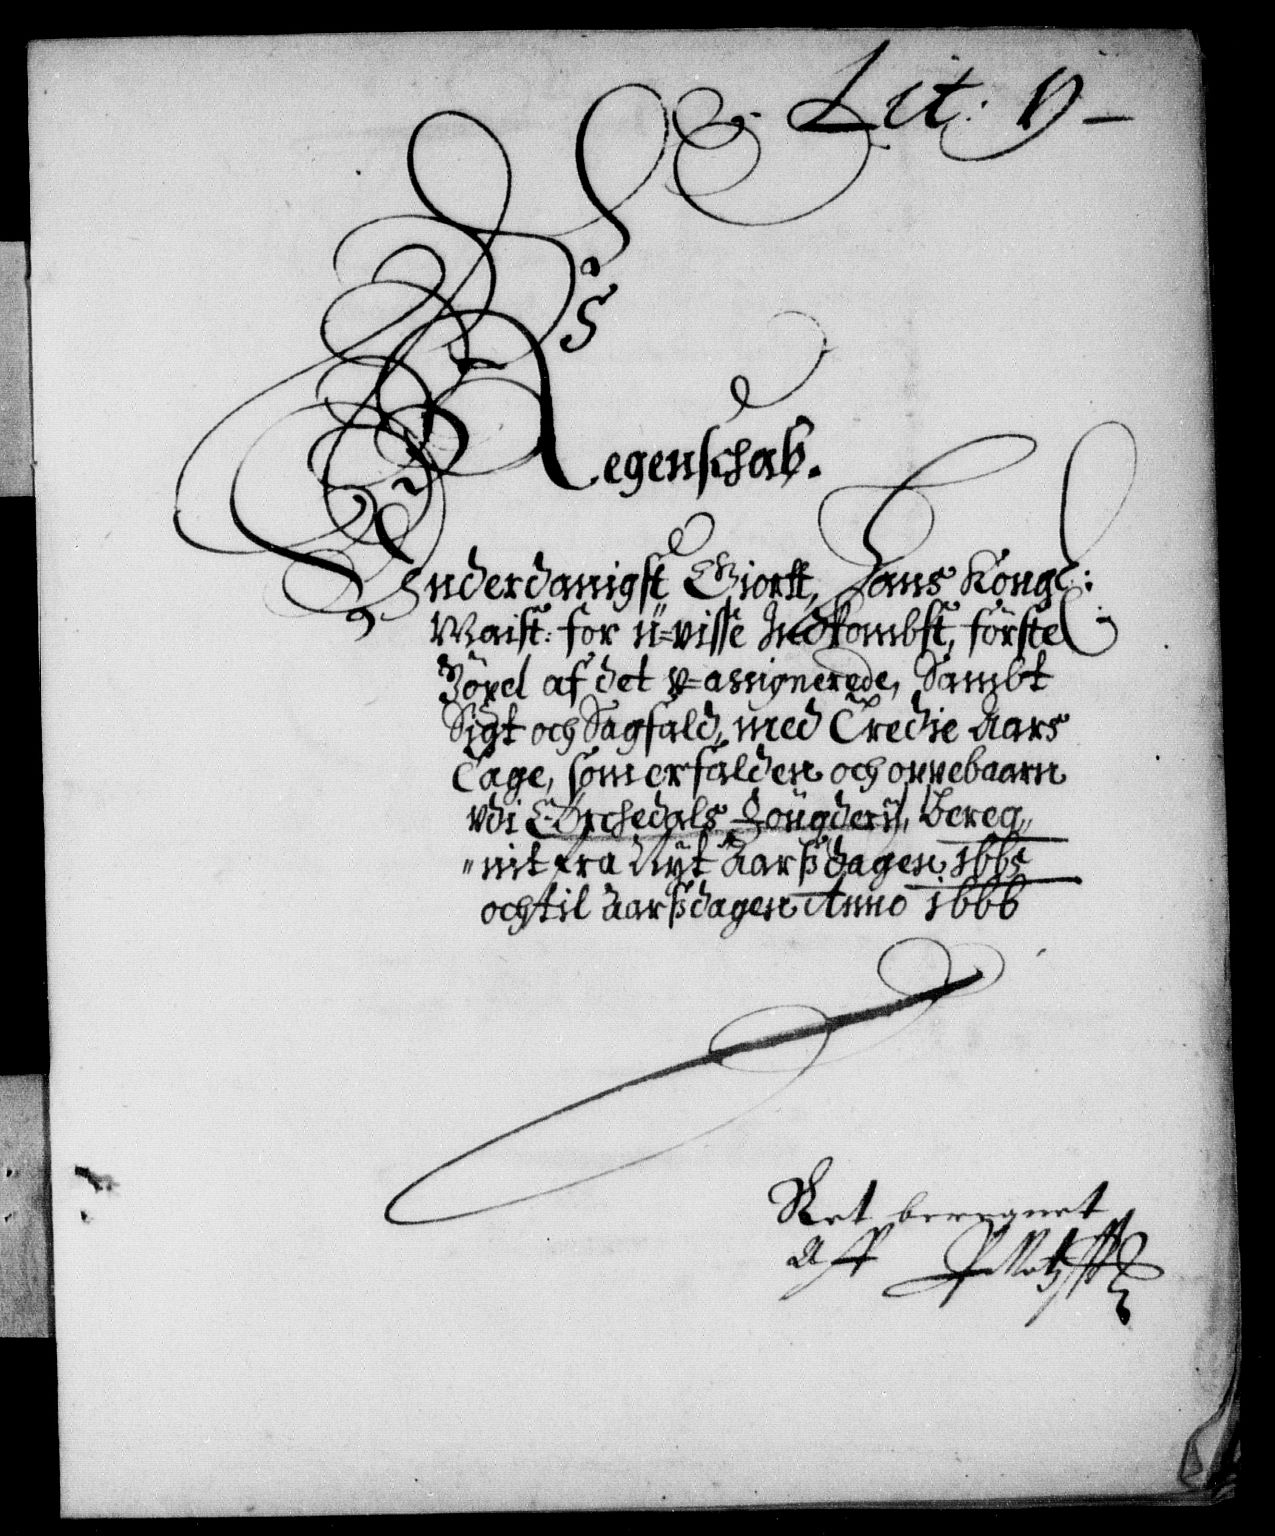 Lit: D
Regenschab.
Vnderdanigst Giortt, Hans Kongl:
Maist: for ü=visse Indkombst, förste
af det v=assignerede, Sambt
Sigt och Sagfald, med Tredie Aars
Tage, som erfalden och oppebaarn
vdi Örchedals Fougderÿ, bereg„
„nit fra Nÿt Aarßdagen 1665
och til Aarßdagen Anno 1666
Ret beregnet
Aff